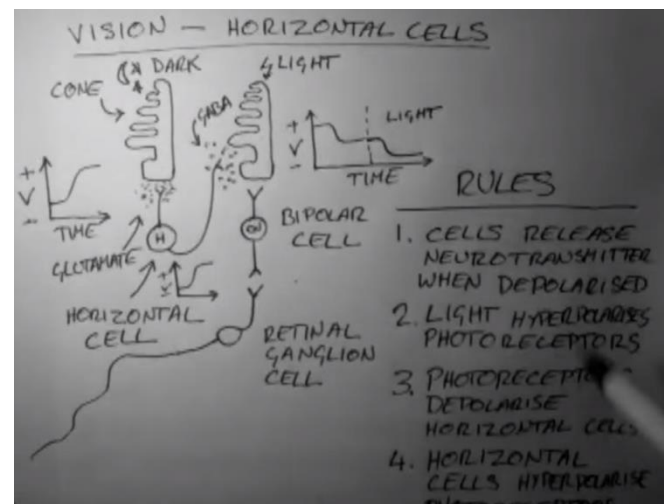 VISION — HORIZONTAL CELLS
DARK
LIGHT
CONE
GABA
+
V
-
TIME
+
V
-
LIGHT
TIME
GLUTAMATE
H
+
V
-
HORIZONTAL
CELL
BIPOLAR
CELL
RETINAL
GANGLION
CELL
RULES
1. CELLS RELEASE
NEUROTRANSMITTER
WHEN DEPOLARISED
2. LIGHT HYPERPOLARISES
PHOTORECEPTORS
3. DEPOLARISE
HORIZONTAL CELLS
4. HORIZONTAL
CELLS HYPERPOLARISE